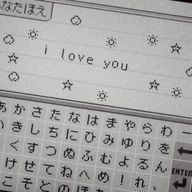 なたほえ
i love you
あかさたなはまやらわ
いきしちにひみゆりを
くすつぬふむよるん
けせてねへめ！れ
こそとのほ